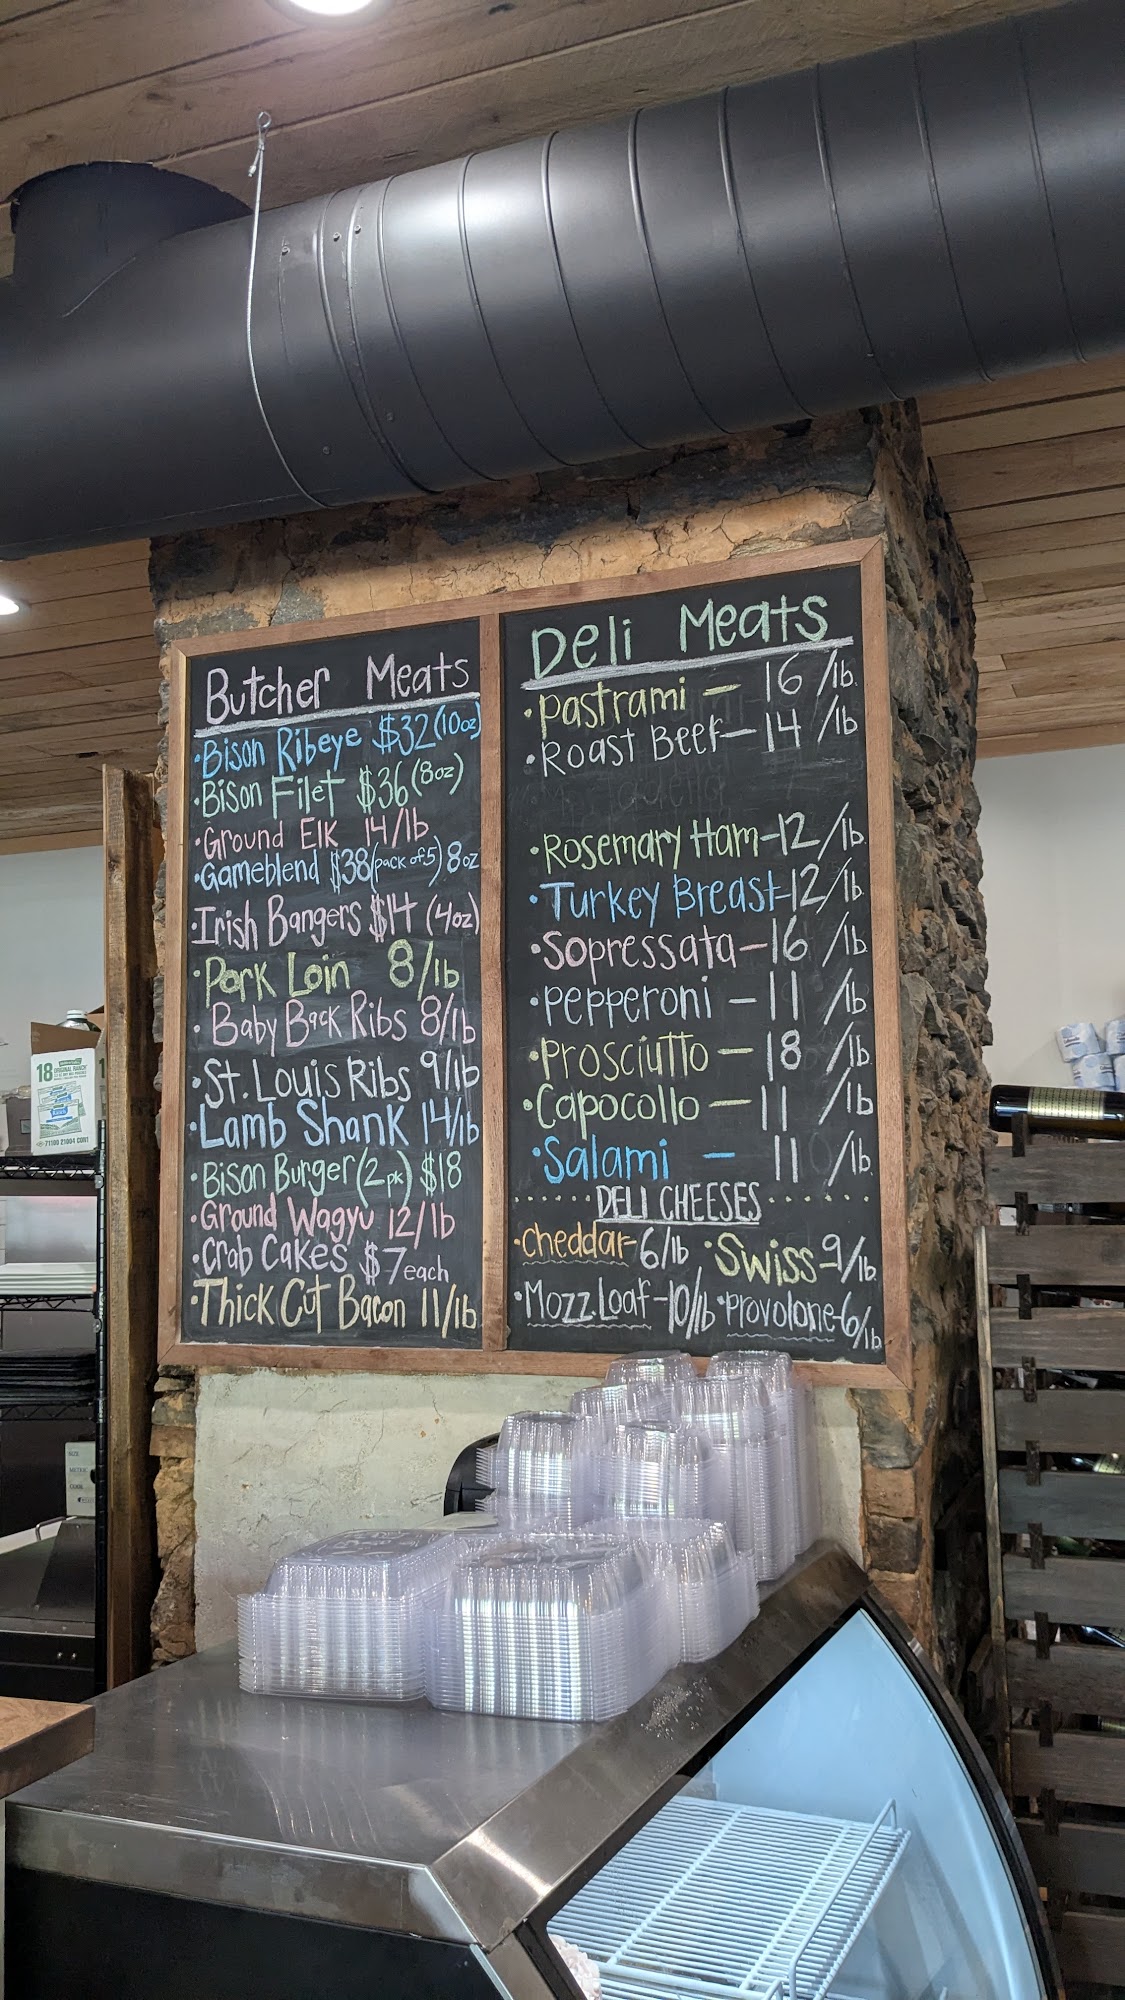 Butcher Meats
· Bison Ribeye $32 (10oz)
· Bison Filet $36 (8oz)
· Ground Elk 14/lb
· Gameblend $38 (pack of 5) 8oz
· Irish Bangers $14 (4oz)
· Pork Loin 8/lb
· Baby Back Ribs 8/lb
· St. Louis Ribs 9/lb
· Lamb Shank 14/lb
· Bison Burger (2pk) $18
· Ground Wagyu 12/lb
· Crab Cakes $7 each
· Thick Cut Bacon 11/lb
Deli Meats
· Pastrami — 16 /lb.
· Roast Beef — 14 /lb
· Rosemary Ham - 12 /lb.
· Turkey Breast - 12/lb.
· Sopressata — 16 /lb.
· Pepperoni — 11 /lb.
· Prosciutto — 18 /lb.
· Capocollo — 11 /lb
· Salami — 11 /lb.
DELI CHEESES
· Cheddar - 6/lb · Swiss - 9/lb.
· Mozz. Loaf - 10/lb · Provolone - 6/lb
18 ORIGINAL RANCH
71100 21004 CON1